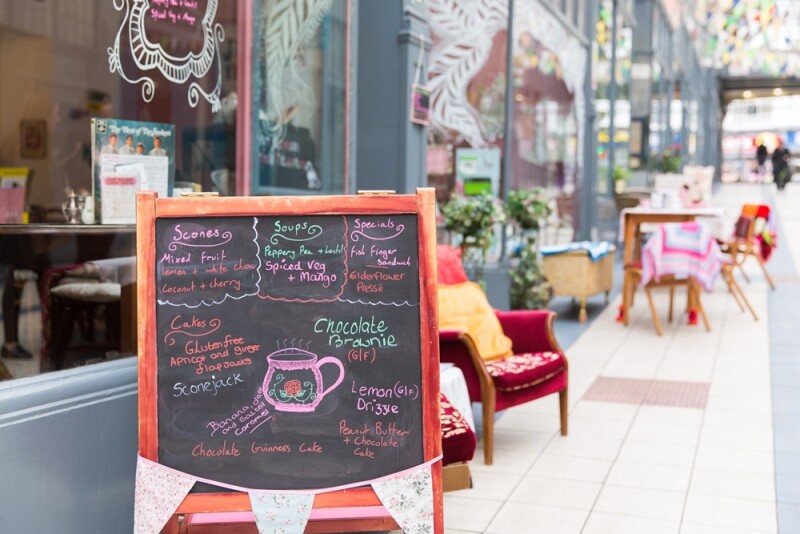 Spiced Veg
+ Mango
The Best of The Seekers
Scones
Mixed Fruit
lemon + white choc
Coconut + cherry
Soups
Peppery Pea + Lentil
Spiced Veg
+ Mango
Specials
Fish Finger
Sandwich
Elderflower
Pressé
Cakes
Glutenfree
Apricot and ginger
flapjacks
Sconejack
Banana
and salted
caramel
Chocolate Guinness Cake
Chocolate
Brownie
(G|F)
Lemon (G|F)
Drizzle
Peanut Butter
+ Chocolate
Cake